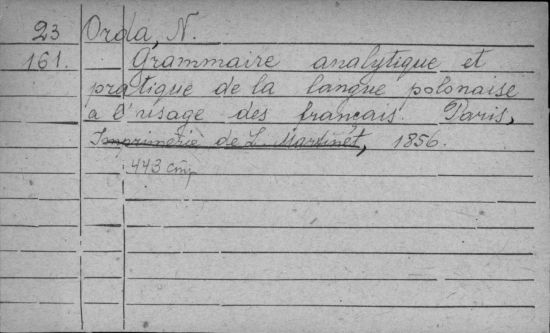 23 Orda, N.
161. Grammaire analytique et
pratique de la langue polonaise
a l'usage des français. Paris,
Imprimerie de L. Martinet, 1856.
443 стр